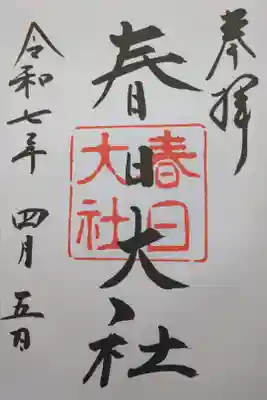 奉拝
春日大社
春日大社
令和七年 四月 五日